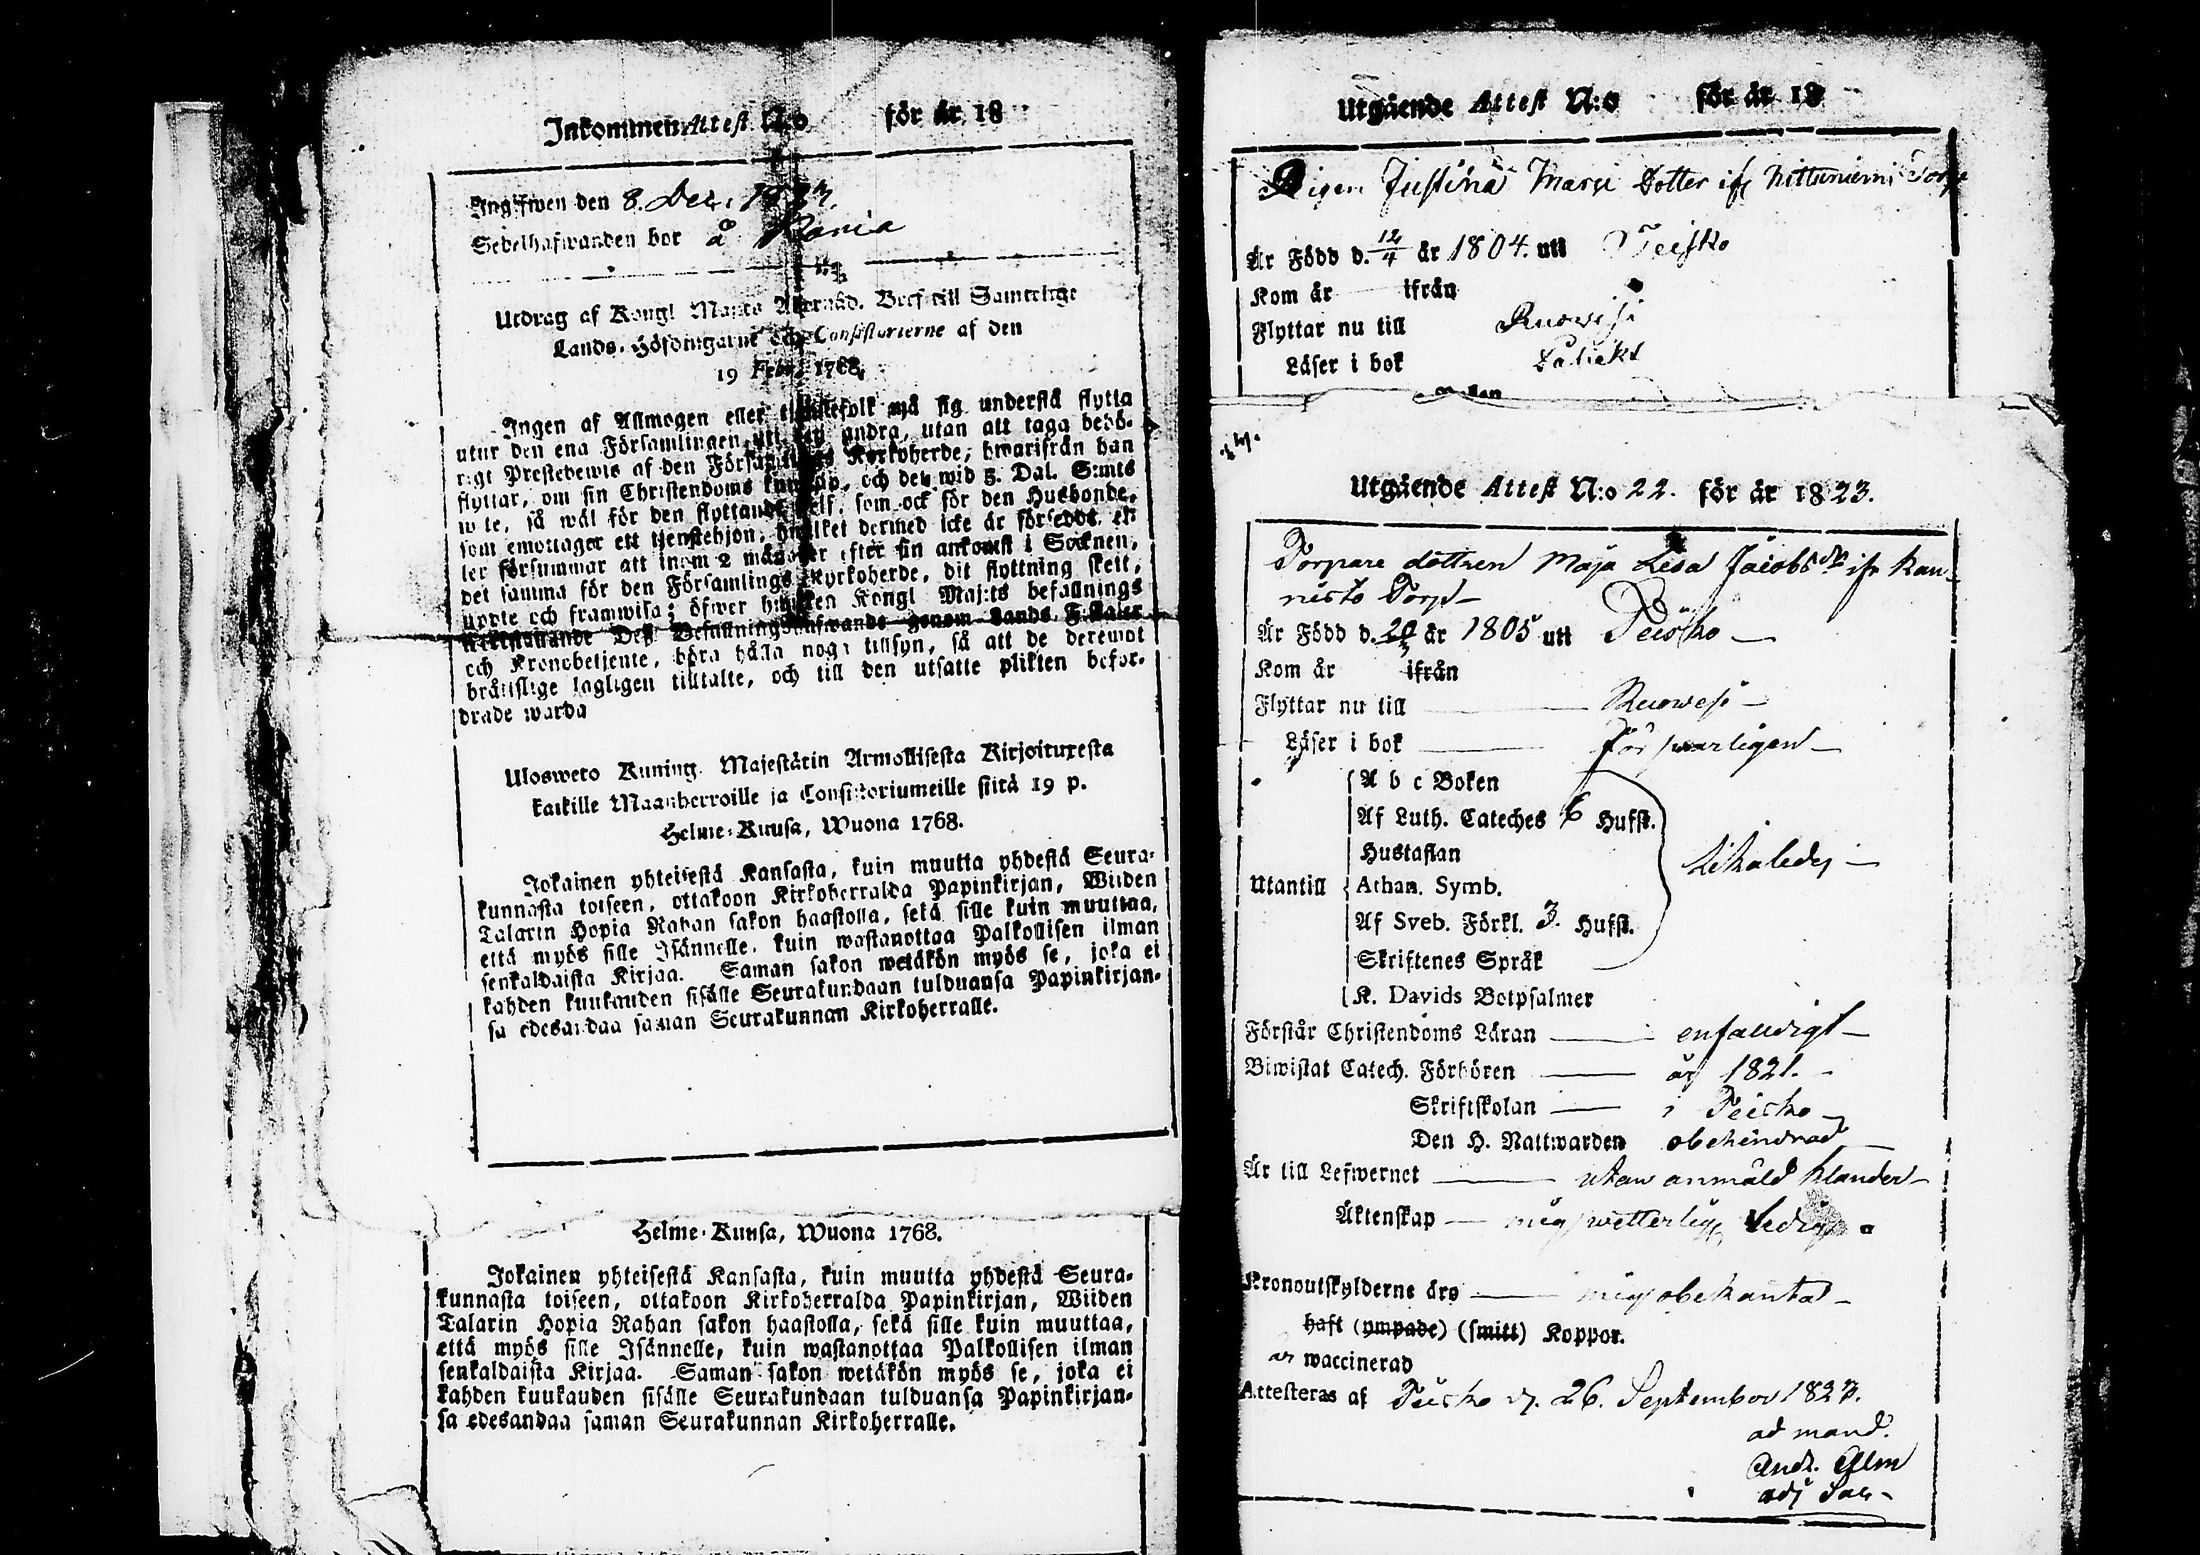 Inkommen Attest N:o för år 18
Ingifwen den 8. Dec. 1823.
Sedelhafwanden bor å Rania
Utdrag af Kongl Maj:ts Allernåd. Bref till Samtelige
Lands-Höfdingarne och Consistorierne af den
19 Febr. 1768.
Ingen af Allmogen eller tjenstefolk må sig understå flytta
utur den ena Församlingen uti den andra, utan att taga behö-
rigt Prestebewis af den Församlings Kyrkoherde, hwarifrån han
flyttar, om sin Christendoms kunskap, och det wid 5. Dal. S:mts
wite, så wäl för den flyttande self, som ock för den Husbonde,
som emottager ett tjenstehjon, hwilket dermed icke är försedt, el-
ler försummar att inom 2 månader efter sin ankomst i Socknen,
det samma för den Församlings Kyrkoherde, dit flyttning skett,
uppte och framwisa; öfwer hwilken Kongl Maj:ts befallnings
Befallningshafwande genom Lands Fiskaler
och Kronobetjente, böra hålla noga tillsyn, så att de deremot
bråttslige lagligen tilltalte, och till den utsatte plikten befor-
drade warda
Ulosweto Kuning. Majestätin Armollisesta Kirjoituxesta
kaikille Maanherroille ja Consistoriumeille siitä 19 p.
Helme-Kuusa, Wuona 1768.
Jokainen yhteisestä Kansasta, kuin muutta yhdestä Seura-
kunnasta toiseen, ottakoon Kirkoherralda Papinkirjan, Wiiden
Talarin Hopia Rahan sakon haastolla, sekä sille kuin muuttaa,
että myös sille Isännelle, kuin wastanottaa Palkollisen ilman
senkaldaista Kirjaa. Saman sakon wetäkön myös se, joka ei
kahden kuukauden sisälle Seurakundaan tulduansa Papinkirjan-
sa edesandaa saman Seurakunnan Kirkoherralle.
Helme-Kuusa, Wuona 1768.
Jokainen yhteisestä Kansasta, kuin muutta yhdestä Seura-
kunnasta toiseen, ottakoon Kirkoherralda Papinkirjan, Wiiden
Talarin Hopia Rahan sakon haastolla, sekä sille kuin muuttaa,
että myös sille Isännelle, kuin wastanottaa Palkollisen ilman
senkaldaista Kirjaa. Saman sakon wetäkön myös se, joka ei
kahden kuukauden sisälle Seurakundaan tulduansa Papinkirjan-
sa edesandaa saman Seurakunnan Kirkoherralle.
Utgående Attest N:o för år 18
Pigan Justina Dotter ifr Torp
Är Född d. 12/4 år 1804. uti Teisko
Kom år ifrån
Flyttar nu till Ruowesi
Läser i bok
Utgående Attest N:o 22. för år 1823.
Torpare dottren Maja Lisa Jacobsdr ifr Kan-
nisto Torp
Är Född d. 20/3 år 1805 uti Teisko
Kom år ifrån
Flyttar nu till Ruowesi
Läser i bok förswarligen
A b c Boken
Af Luth. Cateches 6 Hufst.
Hustaflan
Utantill Athan. Symb. likaledes
Af Sveb. Förkl. 3. Hufst.
Skriftenes Språk
K. Davids Botpsalmer
Förstår Christendoms Läran enfalldigt
Biwistat Catech. Förhören år 1821.
Skriftskolan i Teisko
Den H. Nattwarden obehindrad
Är till Lefwernet utan anmäld klander
Äktenskap mig wetterlig ledig
Kronoutskylderne äro mig obekanta
haft (ympade) (smitt) Koppor.
är waccinerad
Attesteras af Teisko d. 26. September 1823.
ad mand.
And. Alm
adj Sac